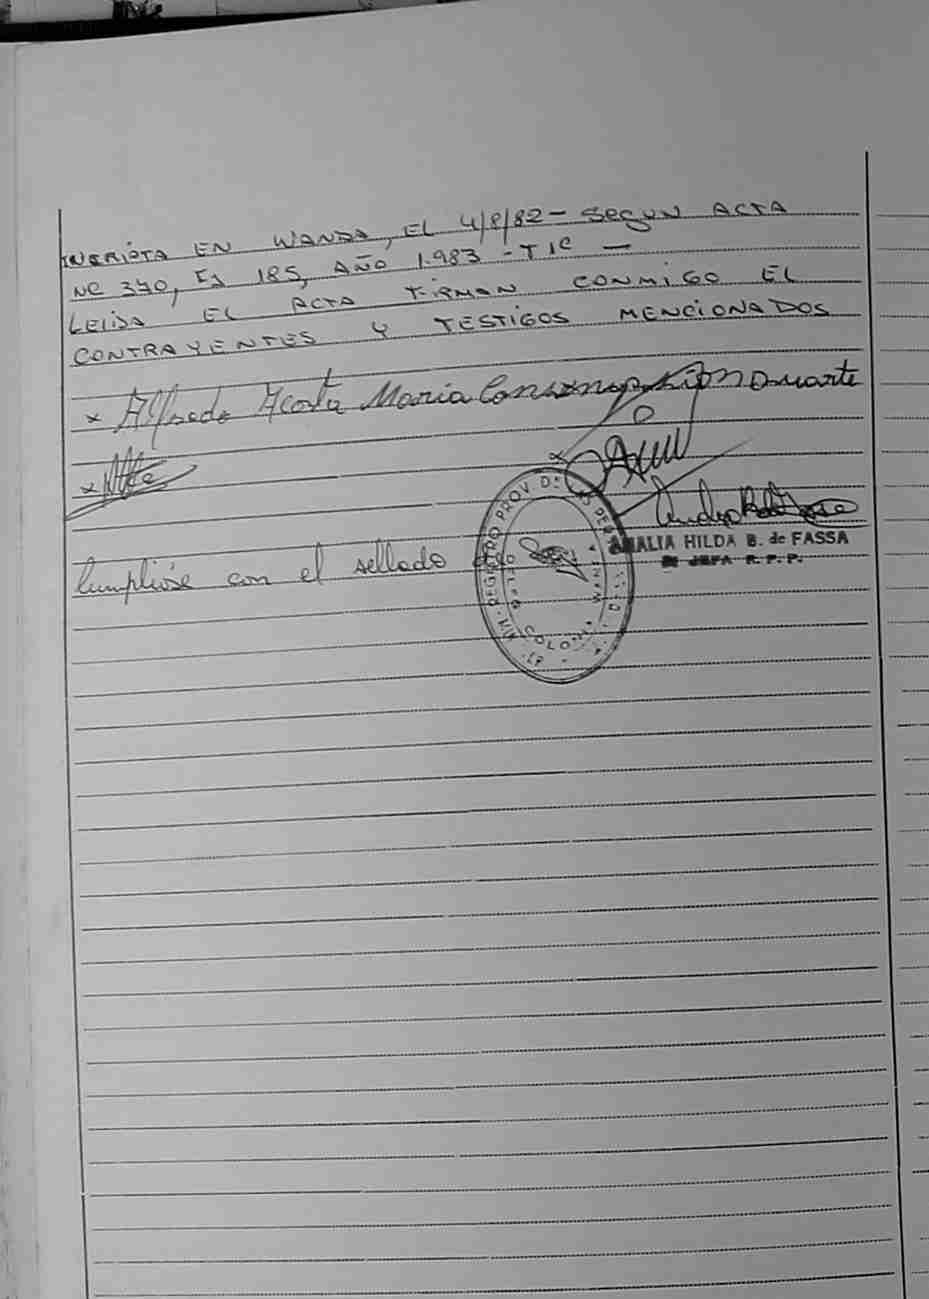 INSRIPTA EN WANDA, EL 4/8/82 - SEGUN ACTA
Nº 370, Fs 185, AÑO 1.983 - Tº
LEIDA EL ACTA FIRMAN CONMIGO EL
CONTRAYENTES Y TESTIGOS MENCIONADOS
x Alfredo Acosta Maria Duarte
x
AMALIA HILDA B. de FASSA
JEFA R.P.P.
Cumplióse con el sellado
REGISTRO PROV. DE LAS PERS
COLONIA WANDA